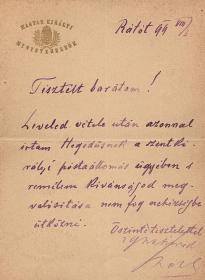 MAGYAR KIRÁLYI
MINISZTERELNÖK
Rátót 99 VIII/
Tisztelt barátom!
Leveled vétele után azonnal
irtam Hegedüsnek a szentki-
rályi postaállomás ügyében s
remélem kivánságod meg-
valósitása nem fog nehézségbe
ütközni.
Őszinte tisztelettel
Széll